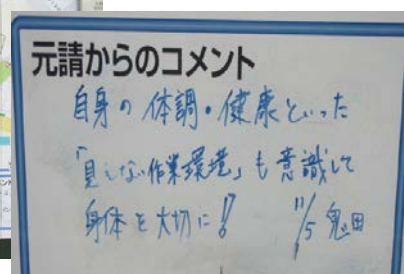 元請からのコメント
自身の体調・健康といった
「見えない作業環境」も意識して
身体を大切に!! 11/5 鬼田